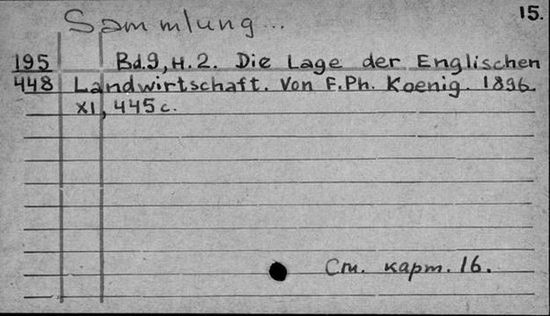 Sammlung...
15.
195
448
Bd.9, H.2. Die Lage der Englischen
Landwirtschaft. Von F.Ph. Koenig. 1896.
XI, 445 с.
См. карт. 16.